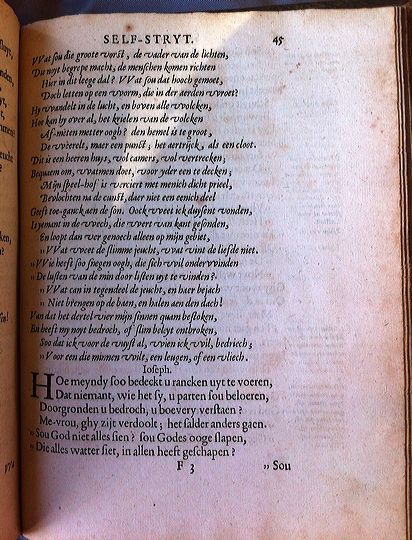 SELF-STRYT. 45
VVat sou die groote vorst, de vader van de lichten,
Die uyt begrepe macht, de menschen komen richten
Hier in dit leege dal? VVat sou dat hooch gemoet,
Doch letten op een worm, die in der aerden vvroet?
Hy vvandelt in de lucht, en boven alle vvolcken,
Hoe kan hy over al, het krielen van de volcken
Af-miten metter oogh? den hemel is te groot,
De vveerelt, maer een punct; het aertrijck, als een cloot.
Dit is een heeren huys, vol camers, vol vertrecken;
Bequaem om, vvatmen doet, voor yder een te decken;
Mijn speel-hof is verciert met menich dicht prieel,
Bevlochten na de cunst, daer niet een eenich deel
Geeft toe-ganck aen de son. Oock vveet ick duysent vonden,
Is yemant in de vvech, die vvert van kant gesonden,
En loopt dan ver genoech alleen op mijn gebiet,
„ VVat vveet de slimme jeucht, vvat vint de liefde niet.
„ VVie heeft soo snegen oogh, die sich vvil ondervvinden
„ De lusten van de min door listen uyt te vinden?
„ VVat can in tegendeel de jeucht, en haer bejach
„ Niet brengen op de baen, en halen aen den dach!
Van dat het dertel vier mijn sinnen quam bestoken,
En heeft my noyt bedroch, of slim beleyt ontbroken,
Soo dat ick voor de vuyst al, vvien ick vvil, bedriech;
„ Voor een die minnen vvilt, een leugen, of een vliech.
Ioseph.
HOe meyndy soo bedeckt u rancken uyt te voeren,
Dat niemant, wie het sy, u parten sou beloeren,
Doorgronden u bedroch, u boevery verstaen?
Me-vrou, ghy zijt verdoolt; het salder anders gaen.
„ Sou God niet alles sien? sou Godes ooge slapen,
„ Die alles watter siet, in allen heeft geschapen?
F 3 „ Sou